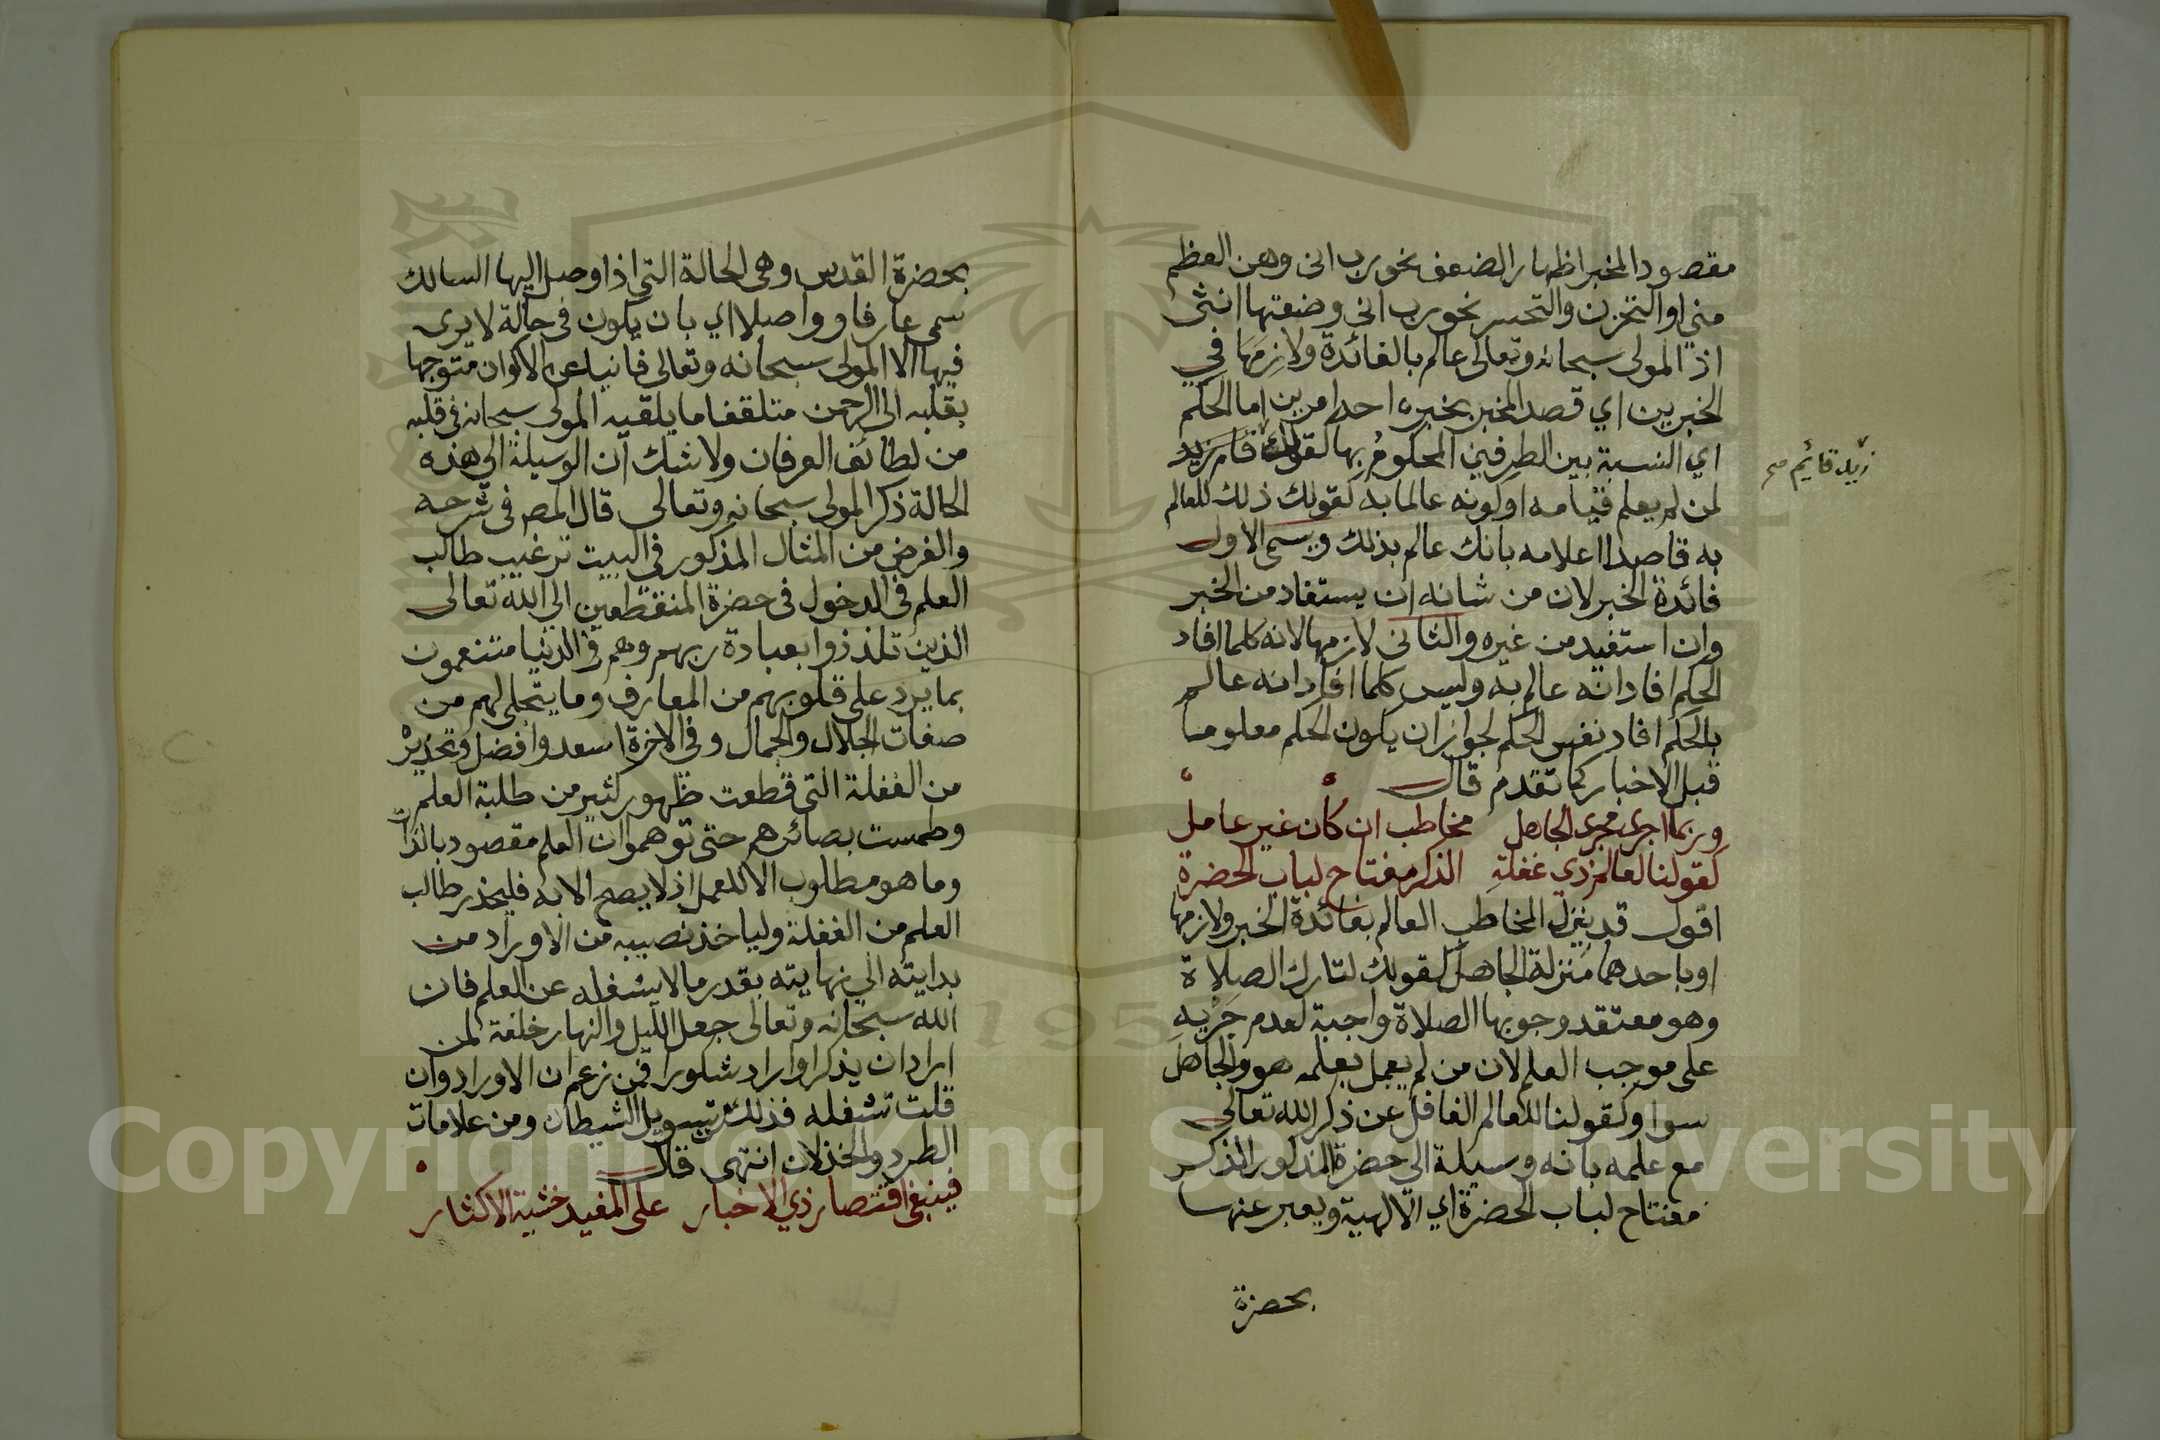 مقصود المخبر اظهار الضعف نحو رب اني وهن العظم
مني او التحزن والتحسر نحو رب اني وضعتها انثى
اذ المولى سبحانه وتعالى عالم بالفائدة ولازمها في
الخبرين اي قصد المخبر بخبره احد امرين اما الحكم
اي النسبة بين الطرفين المحكوم بها لقولك قام زيد
زيد قائم صح
لمن لم يعلم قيامه او كونه عالما به كقولك ذلك للعالم
به قاصدا اعلامه بانك عالم بذلك ويسمى الاول
فائدة الخبر لان من شانه ان يستفاد من الخبر
وان استفيد من غيره والثاني لازمها لانه كلما افاد
الحكم افاد انه عالم به وليس كلما افاد انه عالم
بالحكم افاد نفس الحكم لجواز ان يكون الحكم معلوما
قبل الاخبار كما تقدم قال
وربما اجرى مجرى الجاهل مخاطب ان كان غير عامل
كقولنا لعالم ذي غفلة الذكر مفتاح لباب الحضرة
اقول قد ينزل المخاطب العالم بفائدة الخبر ولازمها
او باحدهما منزلة الجاهل كقولك لتارك الصلاة
وهو معتقد وجوبها الصلاة واجبة لعدم جريه
على موجب العلم لان من لم يعمل بعلمه هو والجاهل
سوا وكقولنا للعالم الغافل عن ذكر الله تعالى
مع علمه بانه وسيلة الى حضرة المذكور الذكر
مفتاح لباب الحضرة اي الالهية ويعبر عنها
بحضرة
بحضرة القدس وهي الحالة التي اذا وصل اليها السالك
سمى عارفا وواصلا اي بان يكون في حالة لا يرى
فيها الا المولى سبحانه وتعالى فانيا عن الاكوان متوجها
بقلبه الى الرحمن متلقفا ما يلقيه المولى سبحانه في قلبه
من لطائف العرفان ولا شك ان الوسيلة الى هذه
الحالة ذكر المولى سبحانه وتعالى قال المص في شرحه
والغرض من المثال المذكور في البيت ترغيب طالب
العلم في الدخول في حضرة المنقطعين الى الله تعالى
الذين تلذذوا بعبادة ربهم وهم في الدنيا متنعمون
بما يرد على قلوبهم من المعارف وما يتجلى لهم من
صفات الجلال والجمال وفي الاخرة اسعد وافضل وتحذيره
من الغفلة التي قطعت ظهور كثير من طلبة العلم
وطمست بصائرهم حتى توهموا ان العلم مقصود بالذات
وما هو مطلوب الا للعمل اذ لا يصح الا به فليحذر طالب
العلم من الغفلة ولياخذ نصيبه من الاوراد من
بدايته الى نهايته بقدر ما لا يشغله عن العلم فان
الله سبحانه وتعالى جعل الليل والنهار خلفة لمن
اراد ان يذكر او اراد شكورا فمن زعم ان الاوراد وان
قلت تشغله فذلك تسويل الشيطان ومن علامات
الطرد والخذلان انتهى قال
فينبغي اقتصار ذي الاخبار على المفيد خشية الاكثار
Copyright © King Saud University
1957